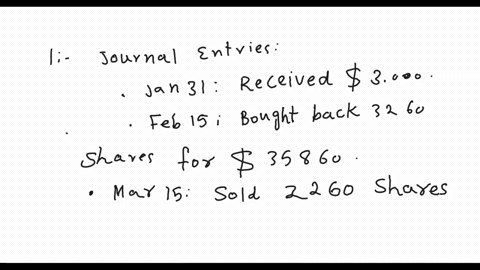 1:- Journal Entries:
• Jan 31: Received $ 3.000.
• Feb 15: Bought back 3260
Shares for $ 35860.
• Mar 15: Sold 2260 Shares